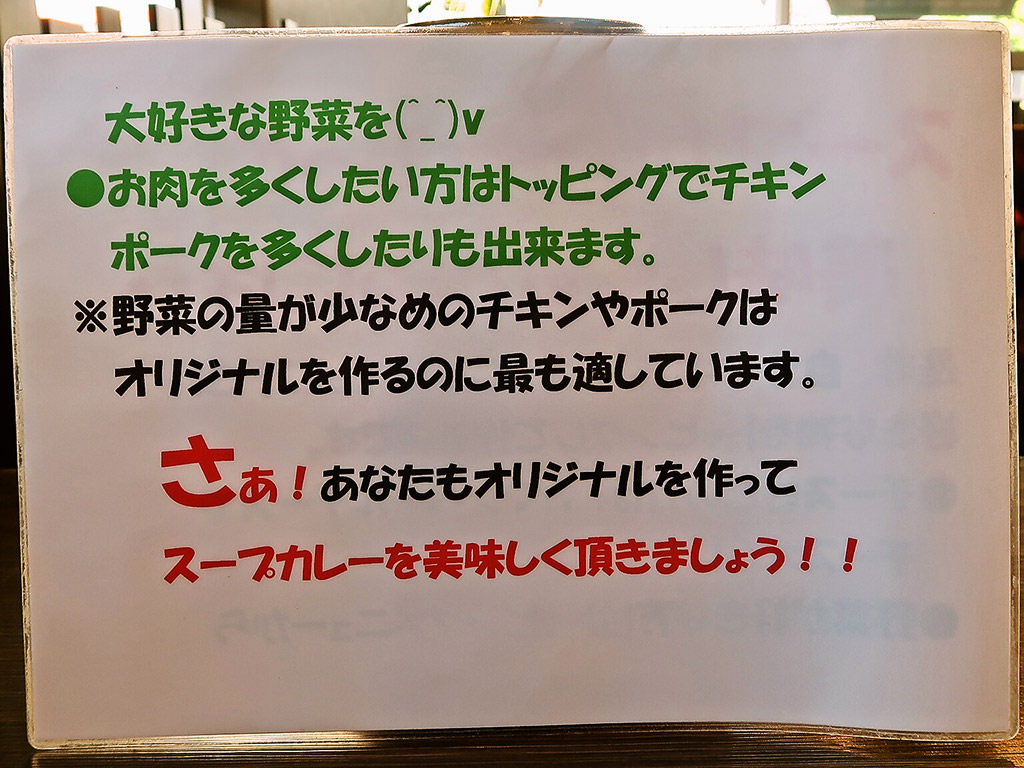 大好きな野菜を(^_^)v
●お肉を多くしたい方はトッピングでチキン
ポークを多くしたりも出来ます。
※野菜の量が少なめのチキンやポークは
オリジナルを作るのに最も適しています。
さぁ！あなたもオリジナルを作って
スープカレーを美味しく頂きましょう！！